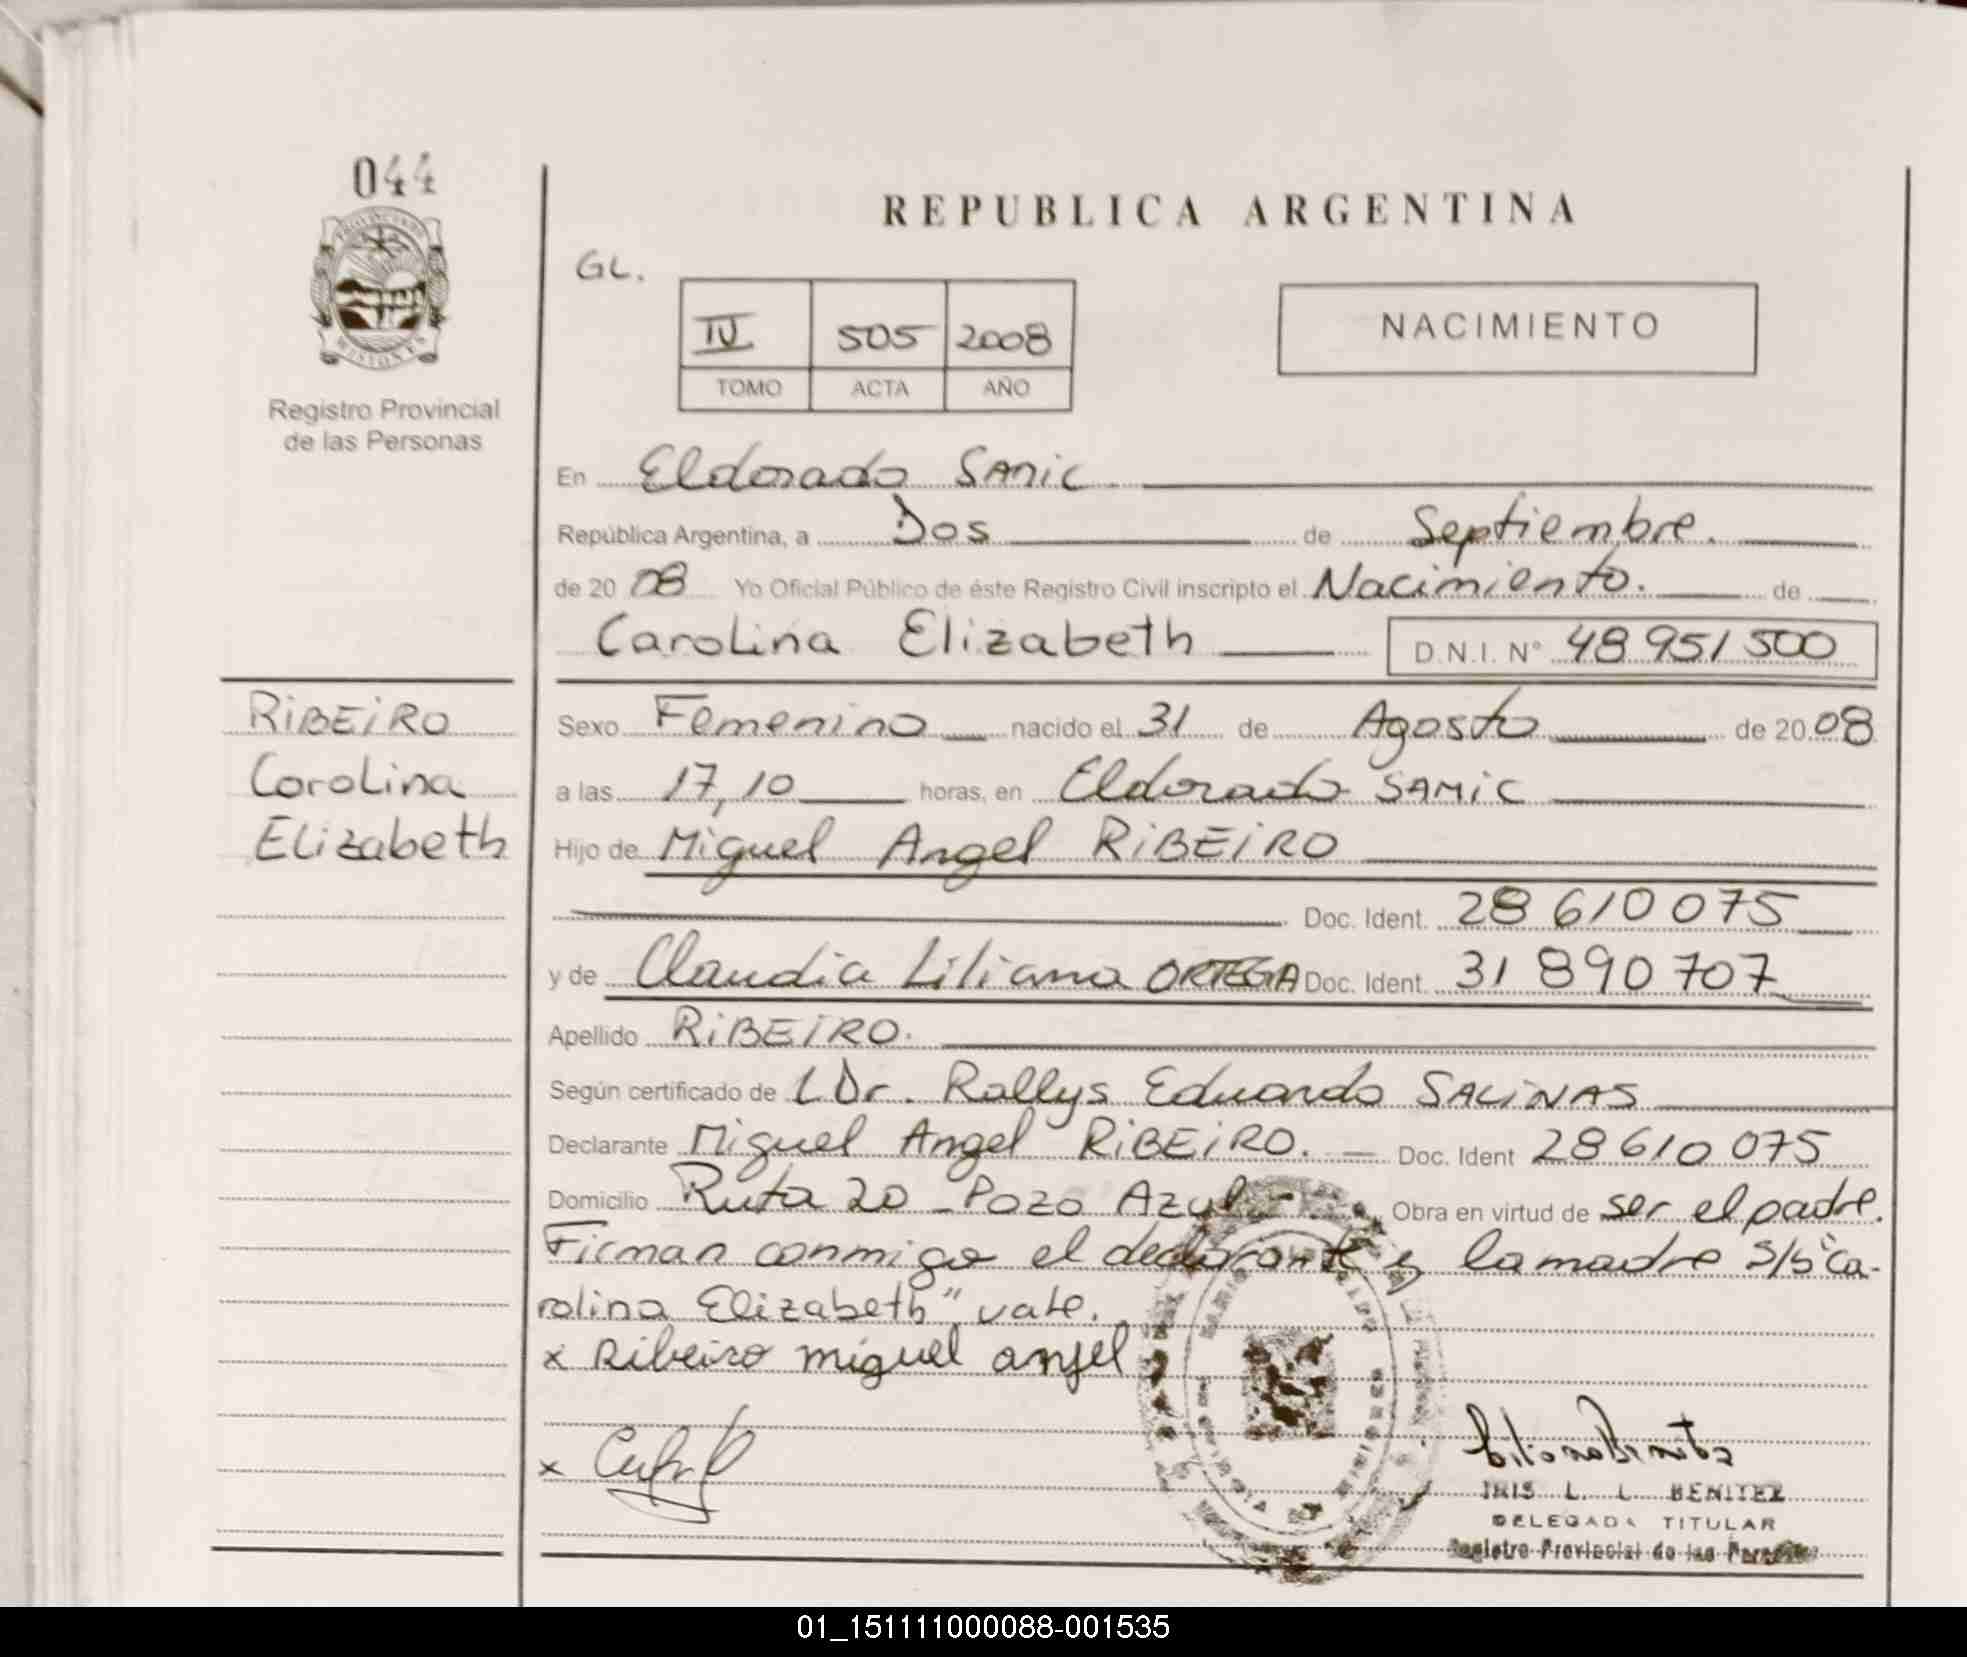 044
PROVINCIA DE
MISIONES
Registro Provincial
de las Personas
REPUBLICA ARGENTINA
GL.
IV 505 2008
TOMO ACTA AÑO
NACIMIENTO
En Eldorado SAMiC
República Argentina, a Dos de Septiembre.
de 20 08 Yo Oficial Público de éste Registro Civil inscripto el Nacimiento. de
Carolina Elizabeth D.N.I. N° 48 951 500
RiBEiRO
Carolina
Elizabeth
Sexo Femenino nacido el 31 de Agosto de 20 08
a las 17,10 horas, en Eldorado SAMiC
Hijo de Miguel Angel RiBEiRO
Doc. Ident. 28 610 075
y de Claudia Liliana ORTEGA Doc. Ident. 31 890 707
Apellido RiBEiRO.
Según certificado de L Dr. Rallys Eduardo SALiNAS
Declarante Miguel Angel RiBEiRO. — Doc. Ident 28 610 075
Domicilio Ruta 20 - Pozo Azul - Obra en virtud de ser el padre.
Firman conmigo el declarante y la madre S/b "Ca-
rolina Elizabeth" vale.
x Ribeiro miguel angel
x
IRIS L. L. BENITEZ
DELEGADA TITULAR
Registro Provincial de las Personas
01_151111000088-001535